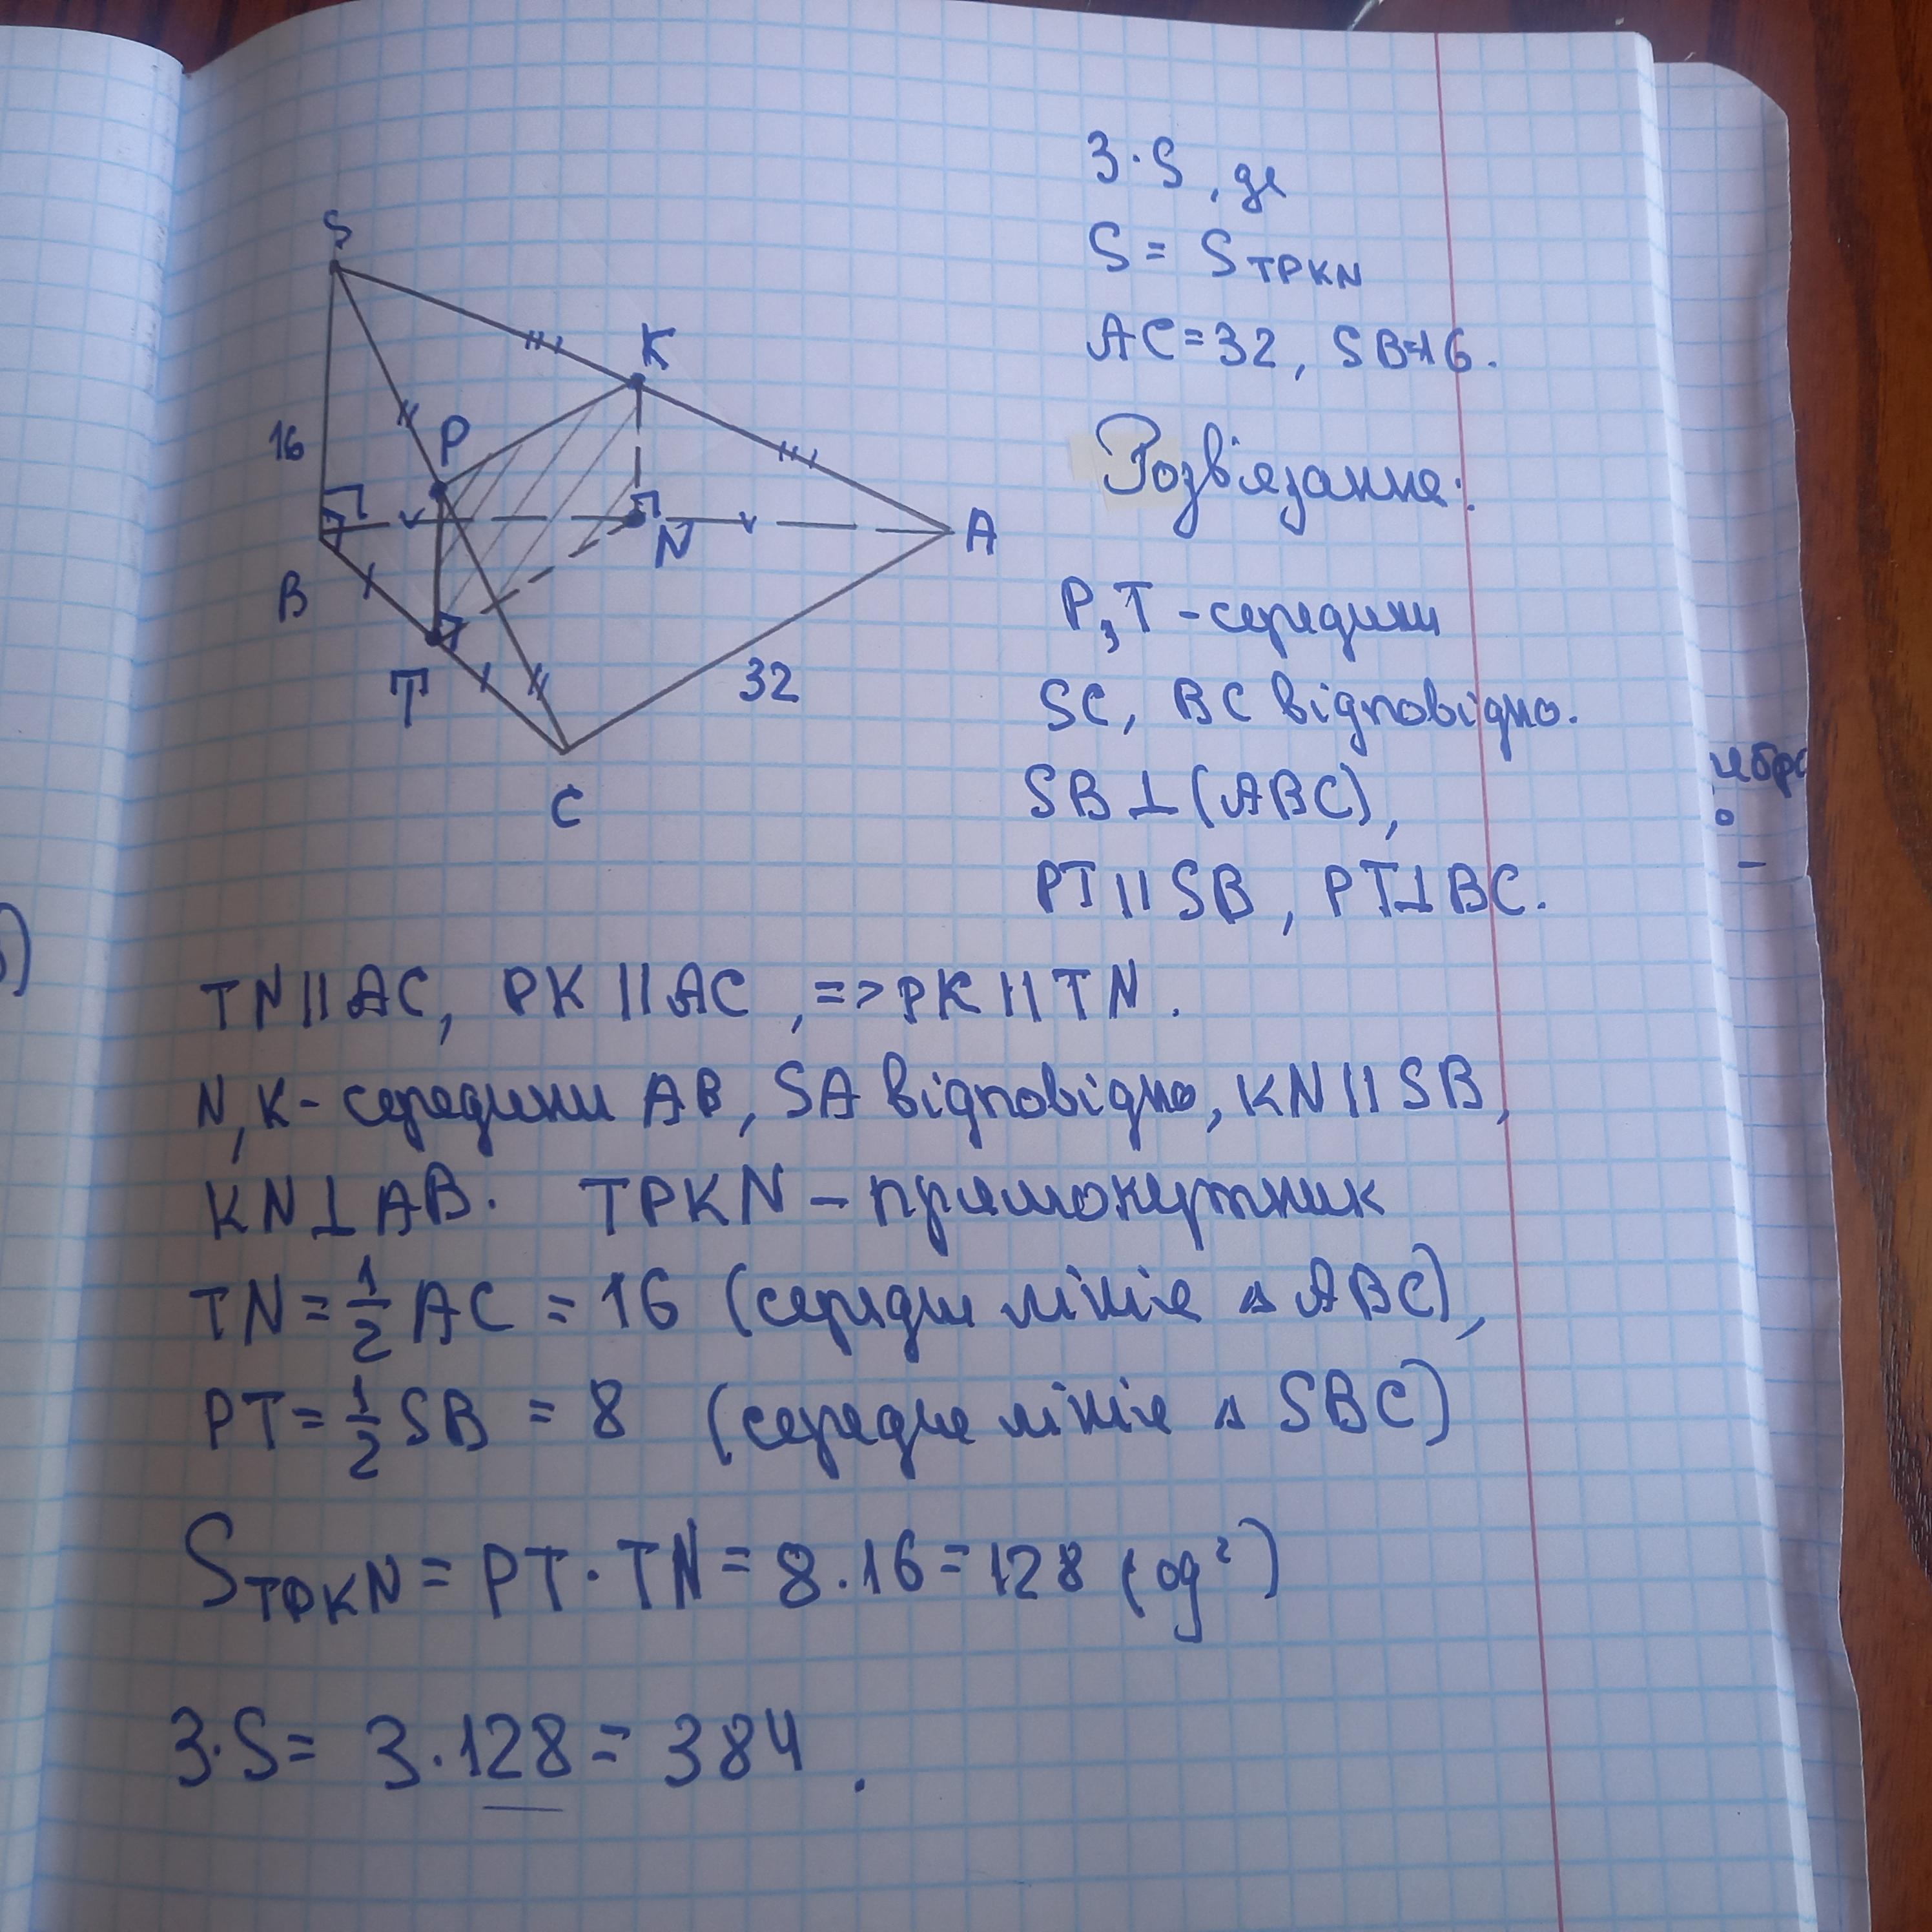 3·S, де
S = S_TPKN
AC=32, SB=16.
Розв'язання:
P, T - середини
SC, BC відповідно.
SB⊥(ABC),
PT || SB, PT⊥BC.
TN || AC, PK || AC, => PK || TN.
N, K - середини AB, SA відповідно, KN || SB,
KN⊥AB. TPKN – прямокутник
TN = 1/2 AC = 16 (середня лінія △ ABC),
PT = 1/2 SB = 8 (середня лінія △ SBC)
S_TPKN = PT · TN = 8·16 = 128 (од²)
3·S = 3·128 = 384.
S
K
16
P
N
A
B
T
32
C
)